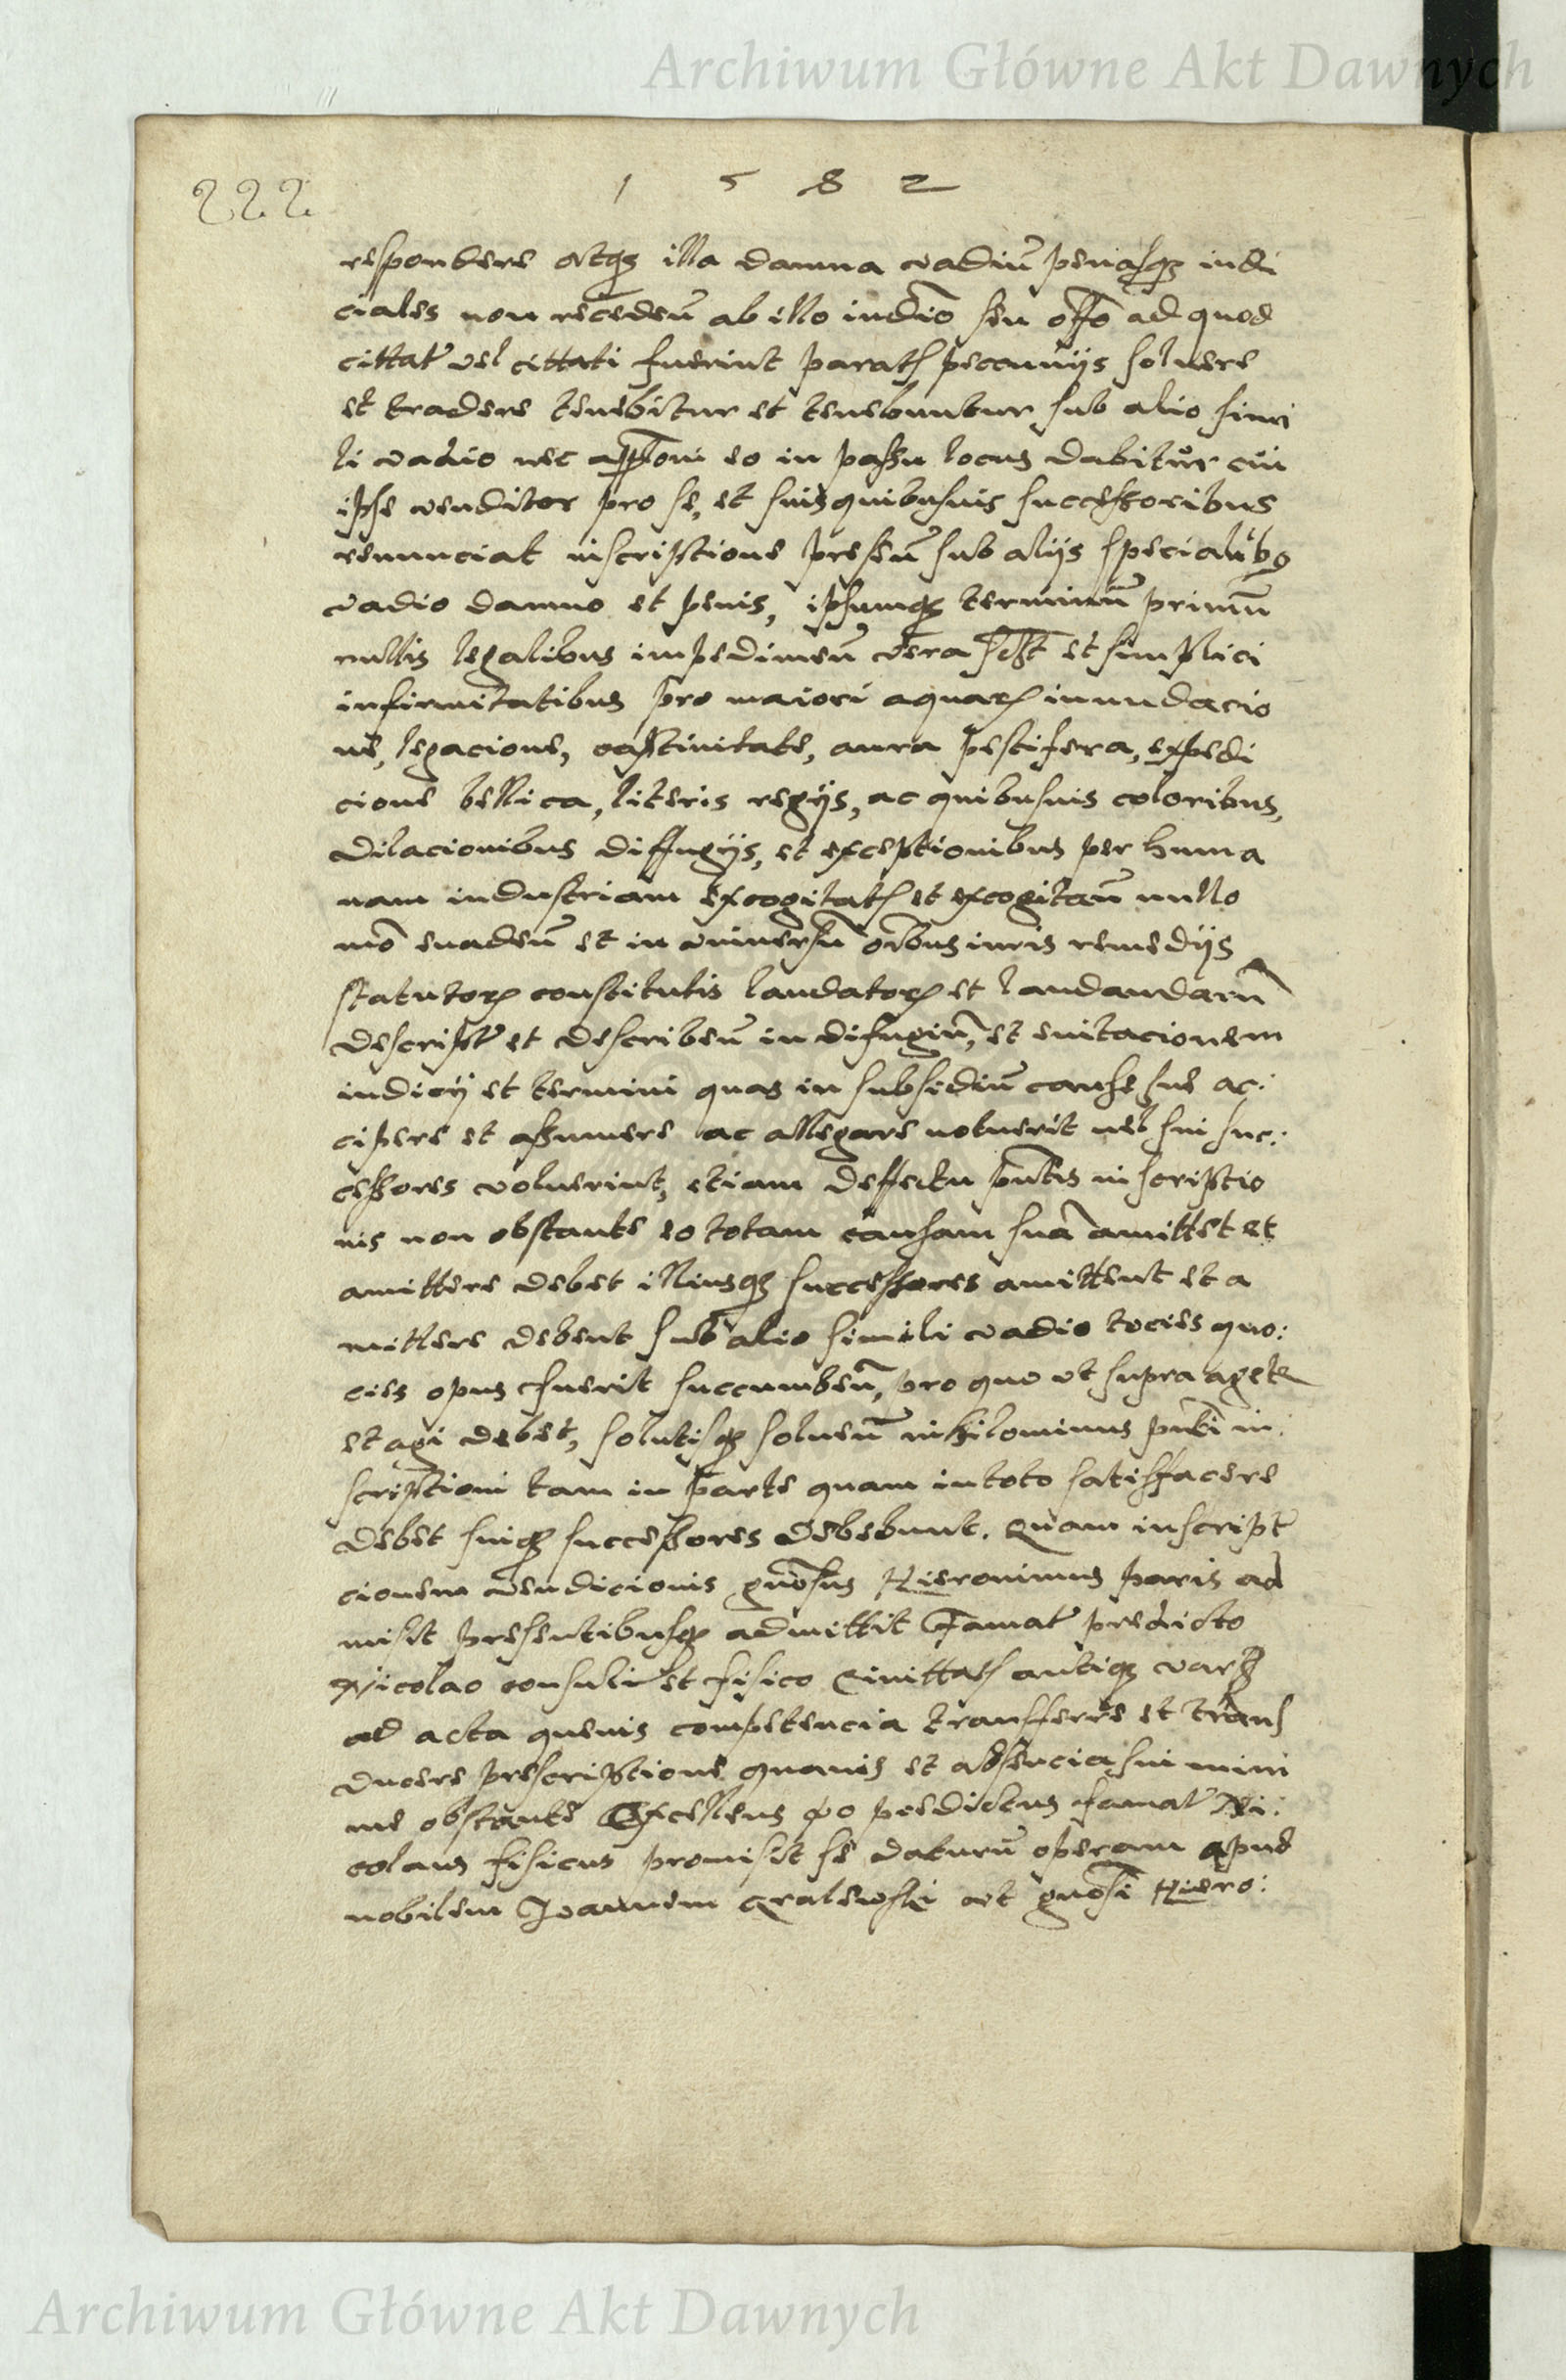 Archiwum Główne Akt Dawnych
222
1 5 8 2
respondere atq3 illa damna vadiū penasq3 iudi
ciales non recedeñ ab illo iudio seu offo ad quod
cittat vel cittati fuerint parat pecuniis soluere
et tradere tenebitur et tenebuntur sub alio simi
li vadio nec appōni eo in passu locus dabitur cui
ipse venditor pro se, et suis quibusuis successoribus
renunciat inscriptione preseñ sub aliis specialib9
vadio damno et penis, ipsumq3 terminū primū
nullis legalibus impedimeñ vera et simplici
infirmitatibus pro maiori aquar inundacio
ne, legacione, captiuitate, aura pestifera, expedi
cione bellica, literis regijs, ac quibusuis coloribus,
dilacionibus diffugijs, et exceptionibus per huma
nam industriam excogitat et excogitañ nullo
mo euadeñ et in vniuersū oibus iuris remedijs
statutor constitutis laudator et laudandarū
descript et describeñ in difugiū, et euitacionem
iudicij et termini quas in subsidiū cause sue ac:
cipere et assumere ac allegare voluerit vel sui suc:
cessores voluerint, etiam deffectu pntis inscriptio
nis non obstante eo totam causam suā amittet et
amittere debet illiusq3 successores amittent et a
mittere debent sub alio simili vadio tocies quo:
cies opus fuerit succumbeñ, pro quo vt supra agere
et agi debet, solutisq3 solueñ nihilominus pnti in:
scriptioni tam in parte quam in toto satisfacere
debet suiq3 successores debebunt. Quam inscript
cionem vendicionis gnosus Hieronimus paris ad
misit presentibusq3 admittit Famat predicto
Nicolao consuli et fisico Ciuittat antiq3 vars
ad acta queuis competencia transferre et trans
ducere prescriptione quauis et absencia sui mini
me obstante Excellens qo predictus famat Ni:
colaus fisicus promisit se daturū operam apud
nobilem Joannem Gralewski vt gnosi Hiero:
Archiwum Główne Akt Dawnych